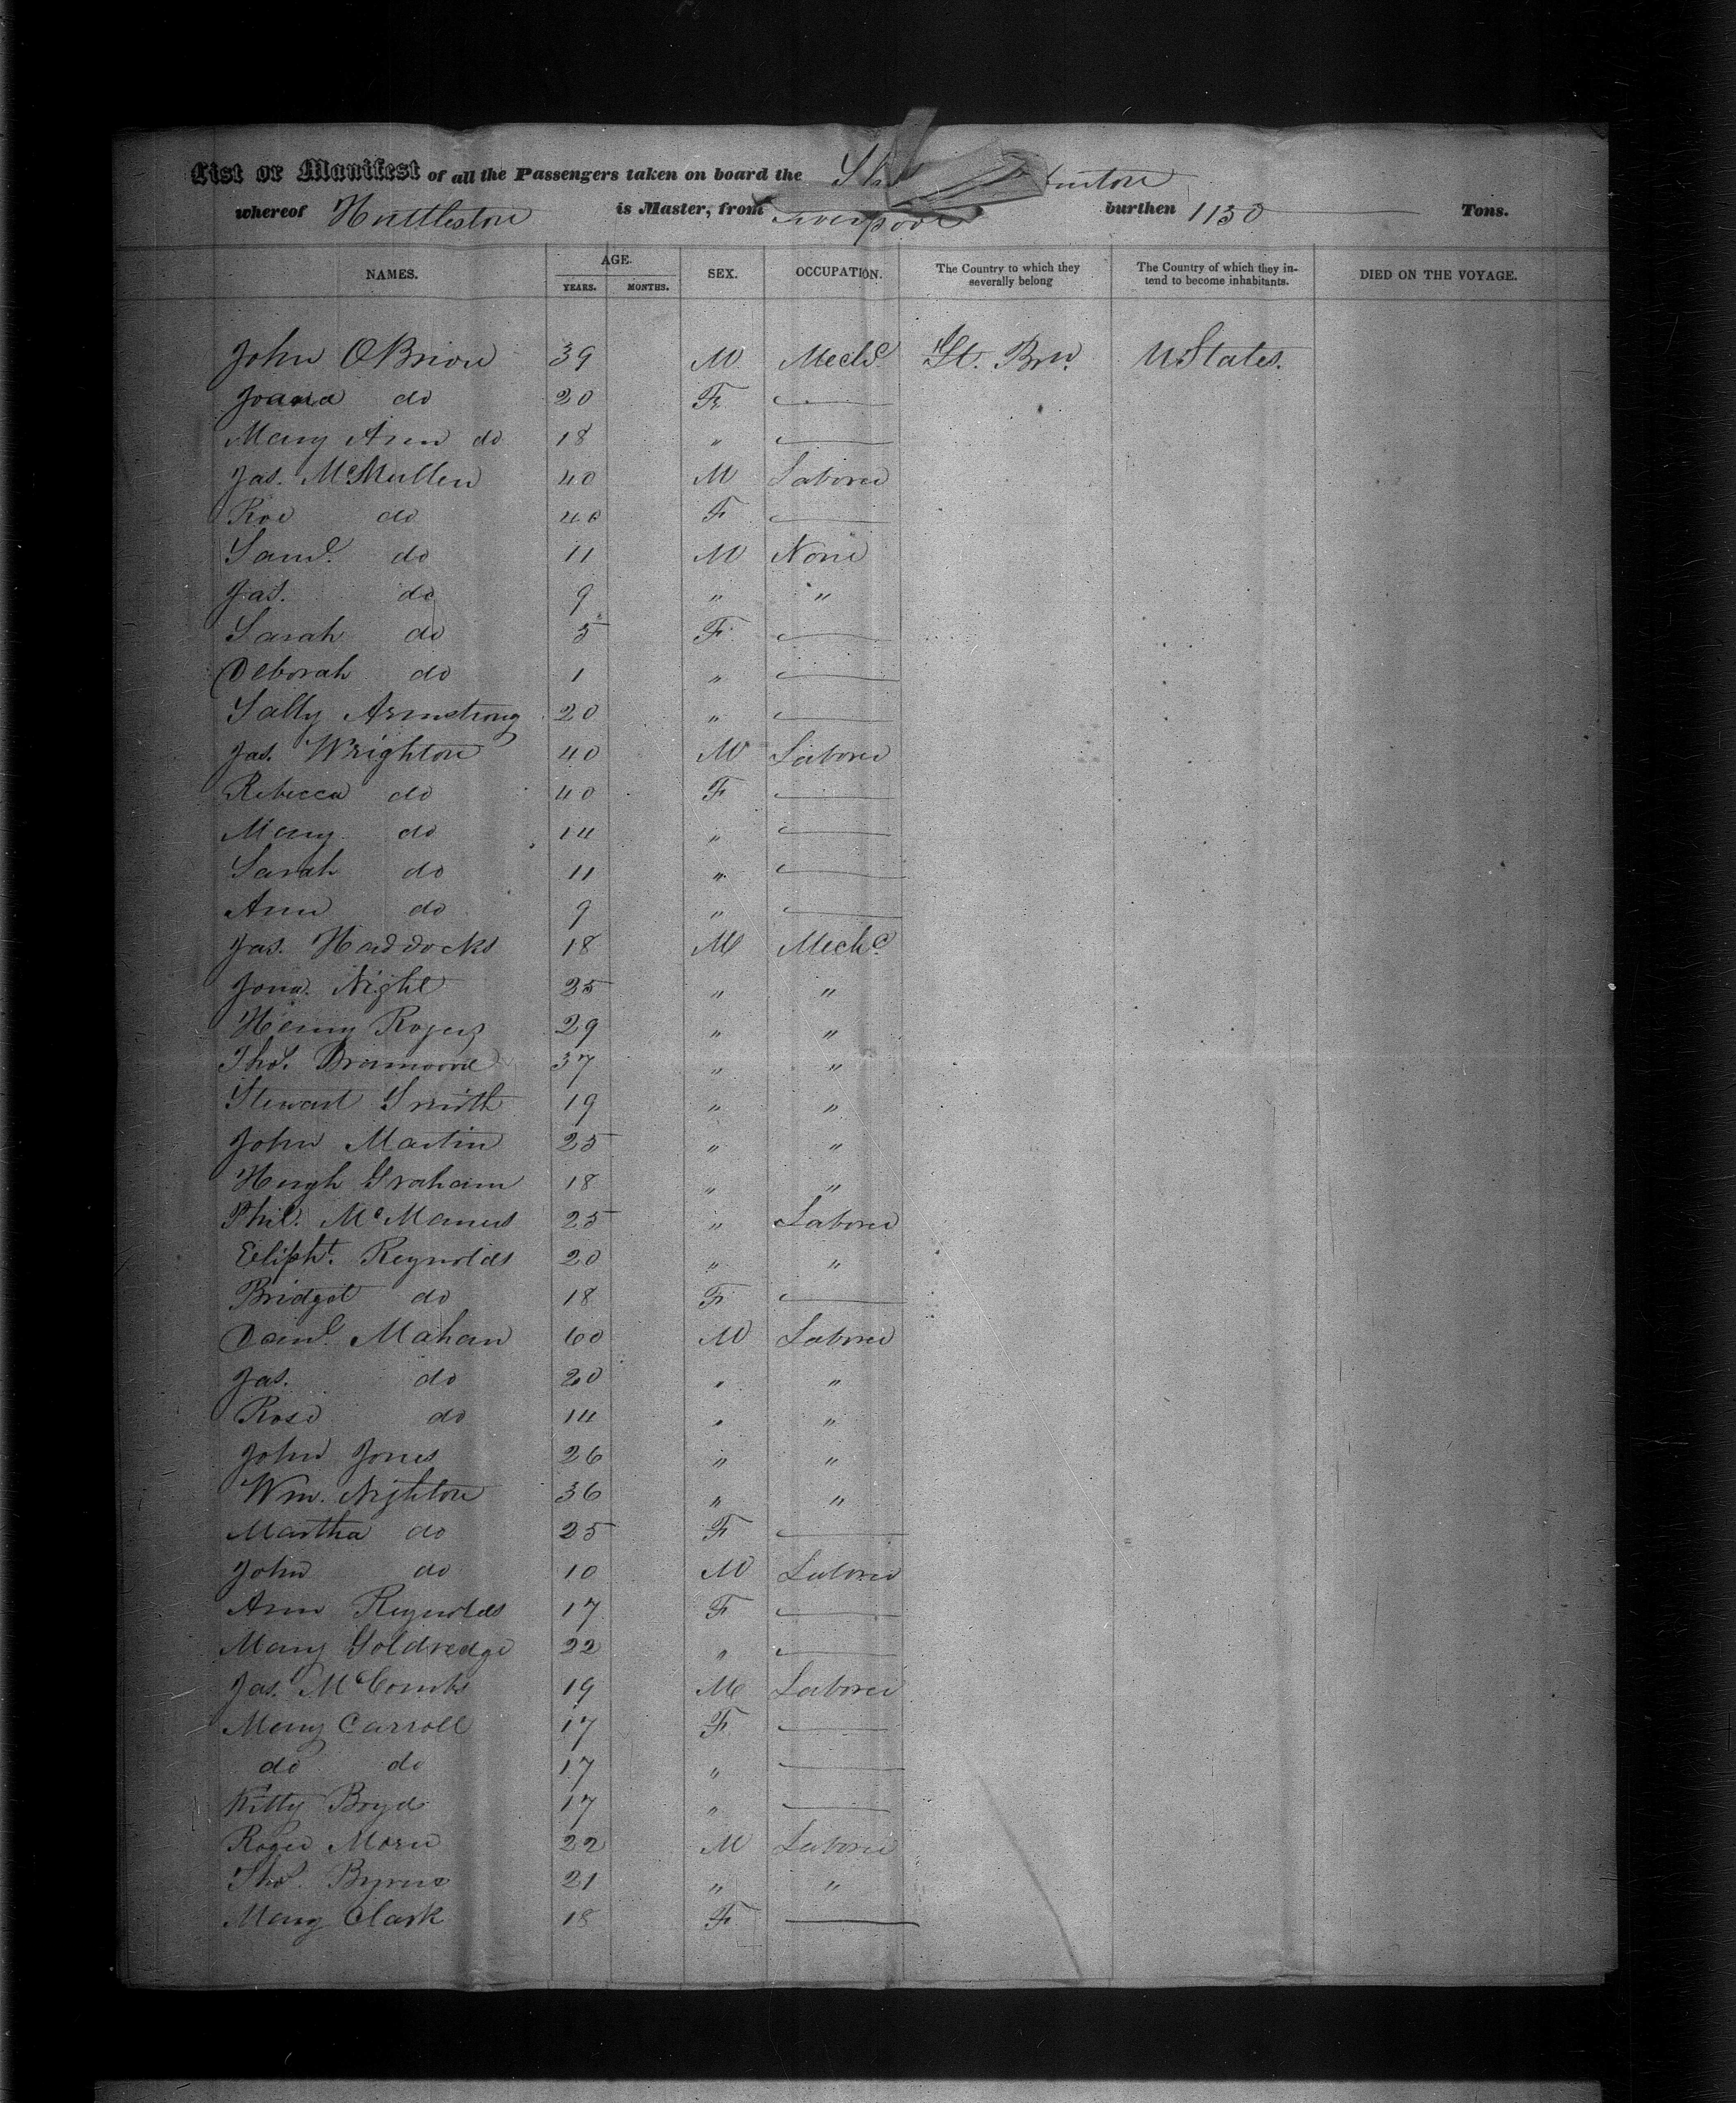 List or Manifest of all the Passengers taken on board the
whereof Huttleston is Master, from Liverpool burthen 1130 Tons.
NAMES. AGE. YEARS. MONTHS. SEX. OCCUPATION. The Country to which they severally belong The Country of which they intend to become inhabitants. DIED ON THE VOYAGE.
John OBrion 39 M Mechc. Gt. Brn. UStates.
Joana do 20 F
Mary Ann do 18 "
Jas. McMullen 40 M Laborer
Roe do 40 F
Saml. do 11 M None
Jas. do 9 " "
Sarah do 5 F
Deborah do 1 "
Sally Armstrong 20 "
Jas. Wrighton 40 M Laborer
Rebecca do 40 F
Mary do 14 "
Sarah do 11 "
Ann do 9 "
Jas. Haddocks 18 M Mechc.
Jona. Night 25 " "
Henny Rogers 29 " "
Thos. 37 " "
Stewart Smith 19 " "
John Martin 25 " "
Hugh Graham 18 " "
Phil. McManus 25 " Laborer
Elipht. Reynolds 20 " "
Bridget do 18 F
Danl. Mahan 60 M Laborer
Jas. do 20 " "
Rose do 14 " "
John Jones 26 " "
Wm. Nighton 36 " "
Martha do 25 F
John do 10 M Laborer
Ann Reynolds 17 F
Mary Goldredge 22 "
Jas. McCombs 19 M Laborer
Mary Carroll 17 F
do do 17 "
Kitty Bryd 17 "
Roger 22 M Laborer
Thos. Byrne 21 " "
Mary Clark 18 F